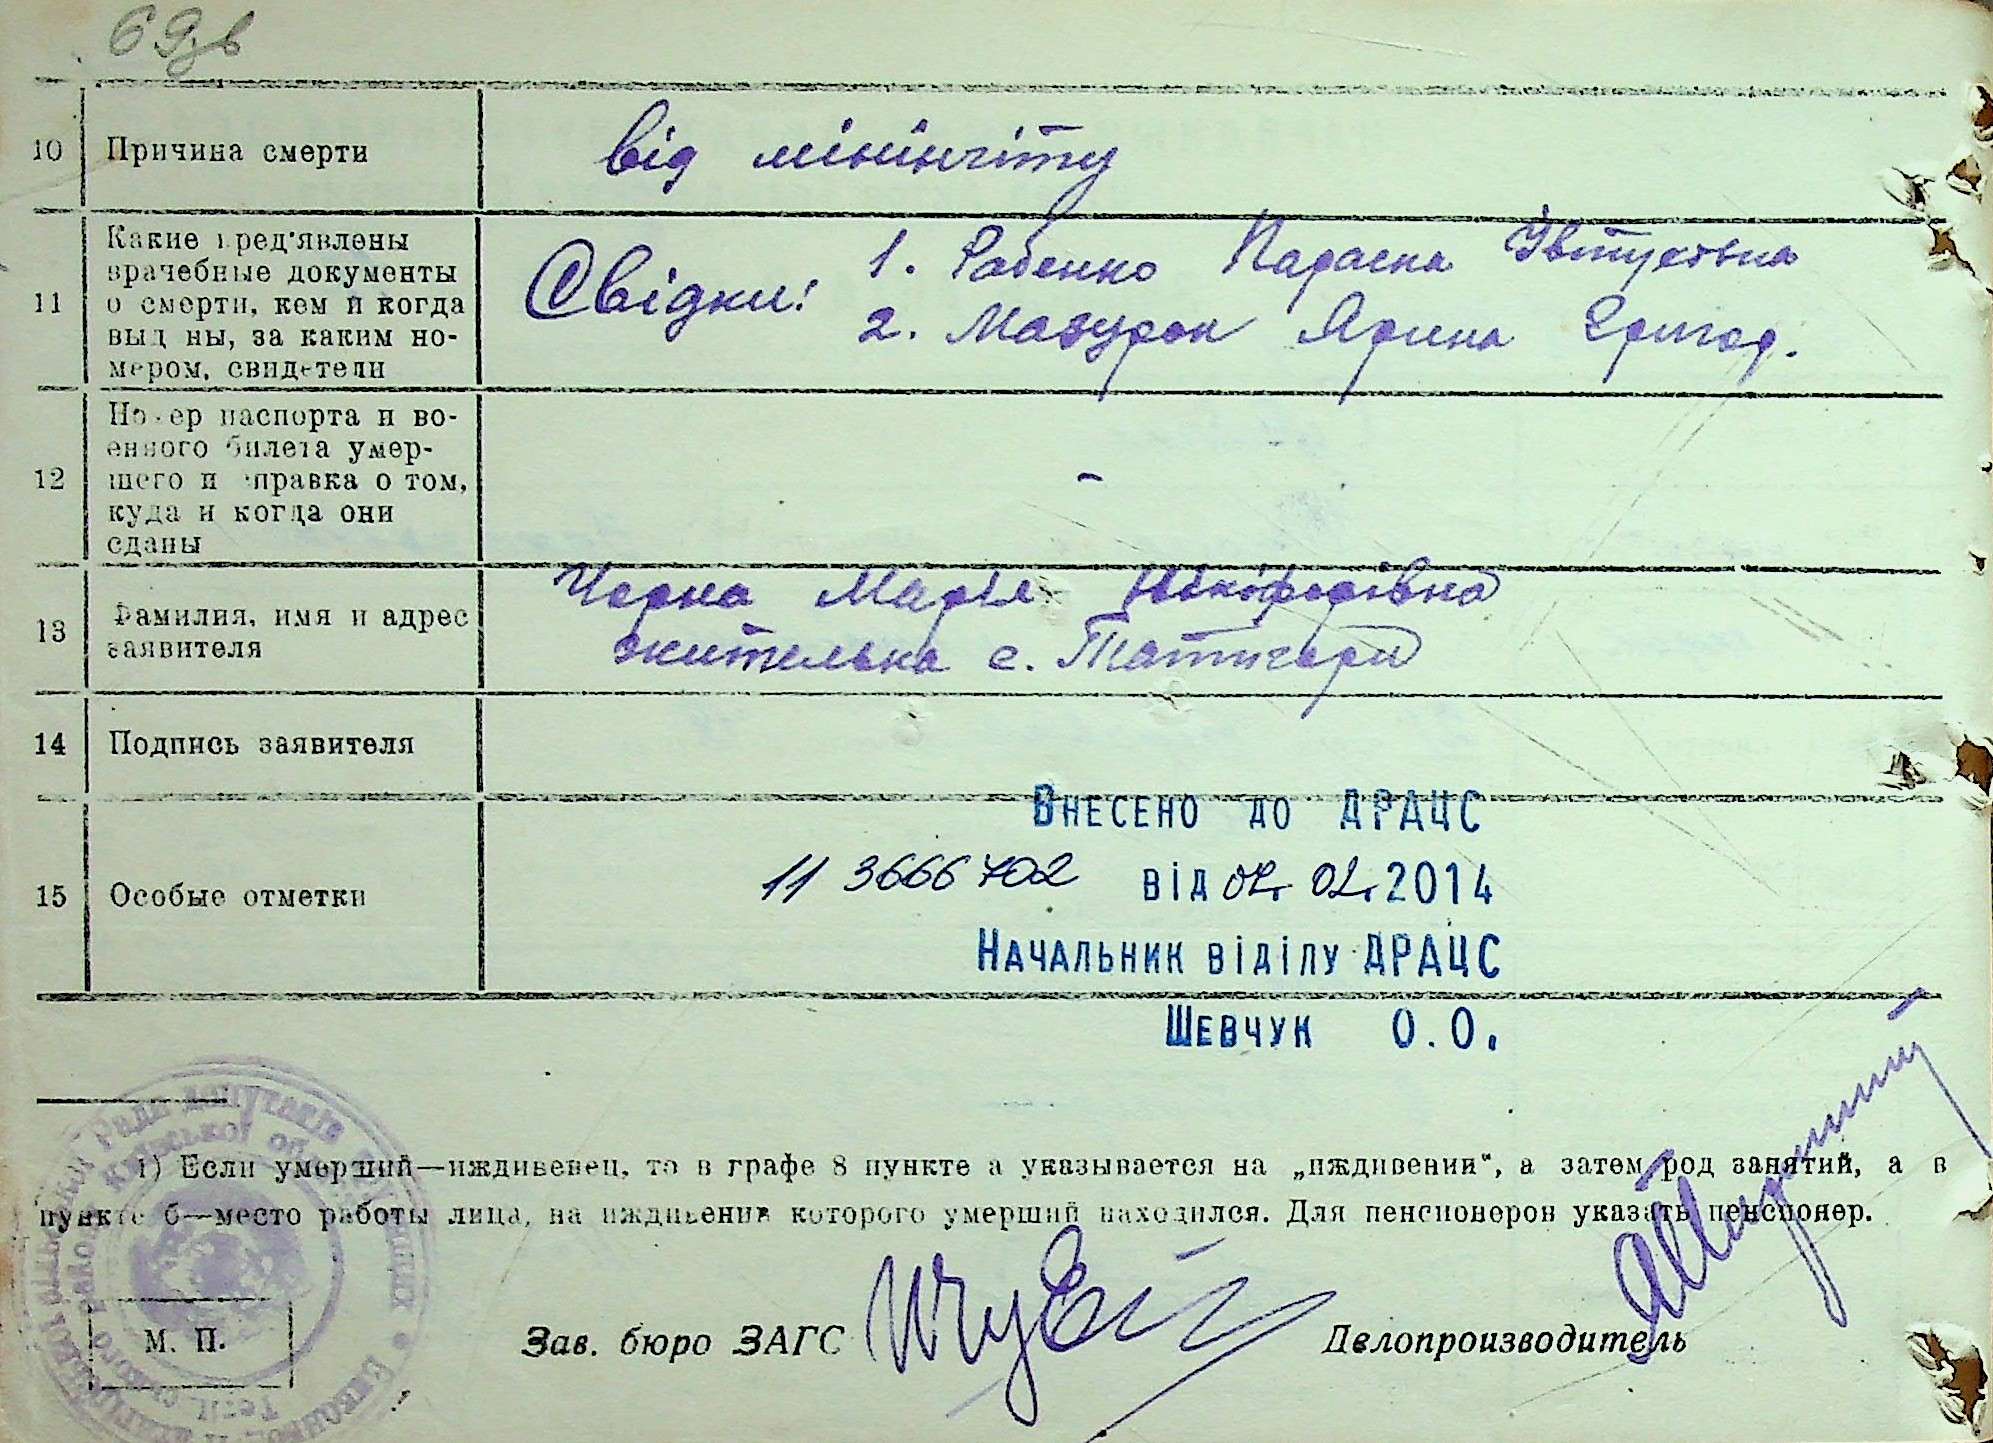 69зв
10 Причина смерти від мінінгіту
11 Какие пред'явлены
врачебные документы
о смерти, кем и когда
выд ны, за каким но-
мером, свидетели
Свідки: 1. Рабенко Параска
2. Мазурок Ярина Григор.
12 Номер паспорта и во-
енного билета умер-
шего и справка о том,
куда и когда они
сданы
-
13 Фамилия, имя и адрес
заявителя
Чорна Марія Нікіфорівна
жителька с.
14 Подпись заявителя
15 Особые отметки
Внесено до ДРАЦС
11 3666702 від 02. 02. 2014
Начальник відділу ДРАЦС
Шевчук О.О.
1) Если умерший—иждивенец, то в графе 8 пункте а указывается на „иждивении“, а затем род занятий, а в
пункте б—место работы лица, на иждивении которого умерший находился. Для пенсионеров указать пенсионер.
М. П.
Зав. бюро ЗАГС
Делопроизводитель